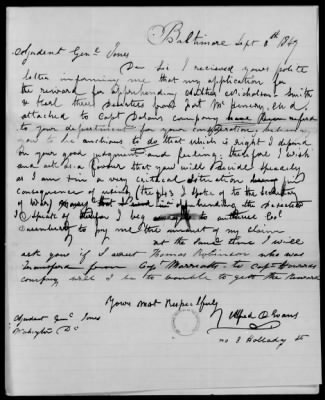 Baltimore Sept 8th 1849
Adjudent Genl Jones
Dear Sir I recieved your polite
letter informing me that my application for
the reward for apprehending Nicholson Smith
& Earl three Deserters from Fort McHenery, Md.
attached to Capt company have been refered
to your department for your consideration
you to be anctious to do that which is right I depend
on your good judgment and feeling, therefore I wish
and ask as a favor that you will decide speedily
as I am in a very critical situation
consequence of using the $ I spoke of to the Secretary
of War in the deserters
I spoke of therefor I beg to authorise Col
to pay me the amount of my claim
at the same time I will
ask you if I arrest Thomas Robinson who was
transferd from Capt to Capt
company will I be to get the reward
Yours most Respectfully
Alfred D Evans
no 8 Holladay st
Adjudent Genl Jones
Washington DC